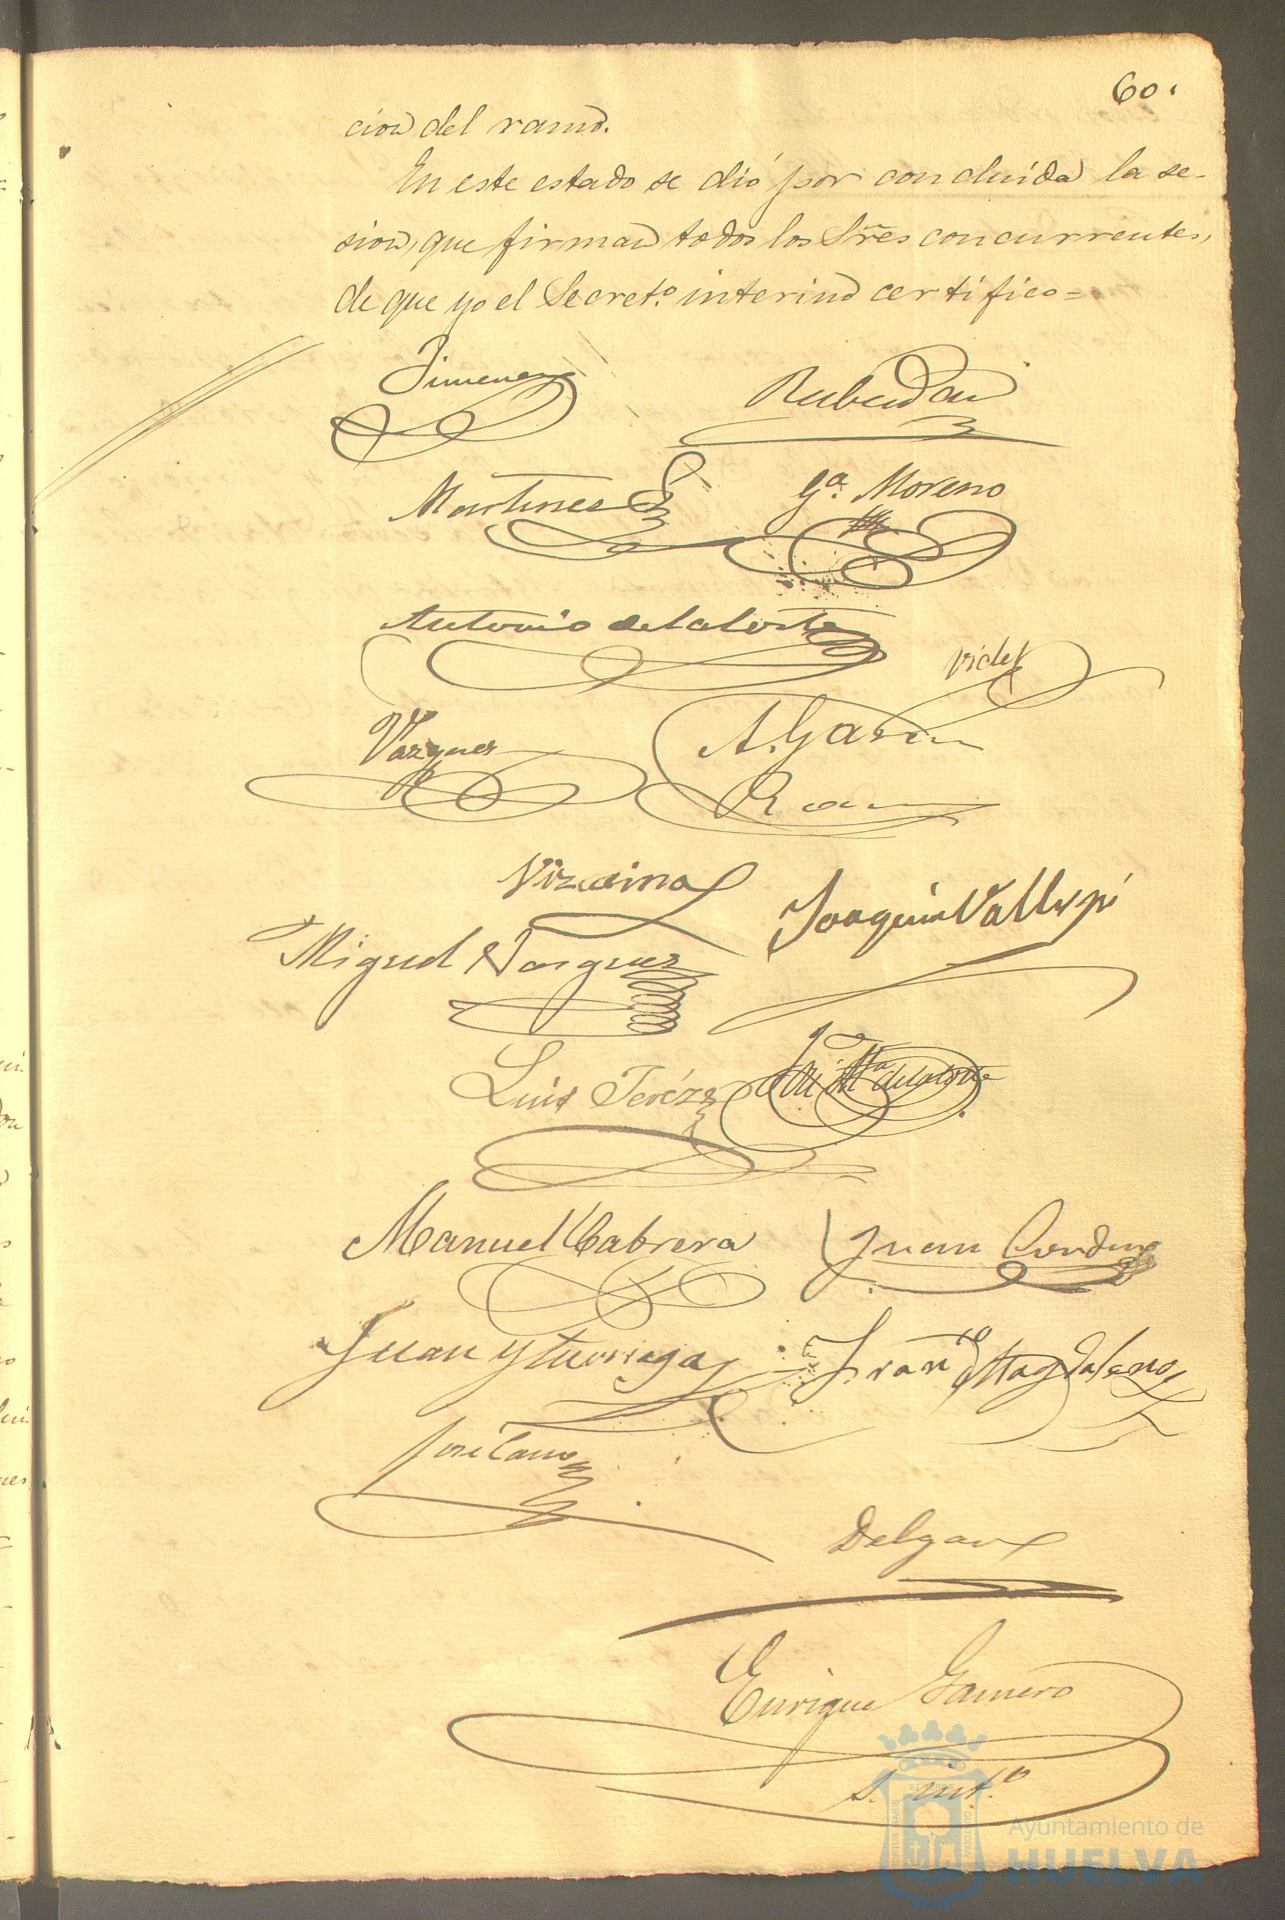 60.
cion del ramo.
En este estado se dió por concluida la se-
sion, que firman todos los Sres concurrentes,
de que yo el Secreto. interino certifico=
Jimenez
Martinez
Ga. Moreno
Antonio de la Corte
Vides
Vazquez
A. Garcia
Vizcaino
Joaquin Vallespi
Miguel Vazquez
Luis Jeréz
José Ma de la Corte
Manuel Cabrera
Juan
Juan Yturriaga
Franco Magdaleno
José Cano
Delgado
Enrique Gamero
S. into.
Ayuntamiento de
HUELVA